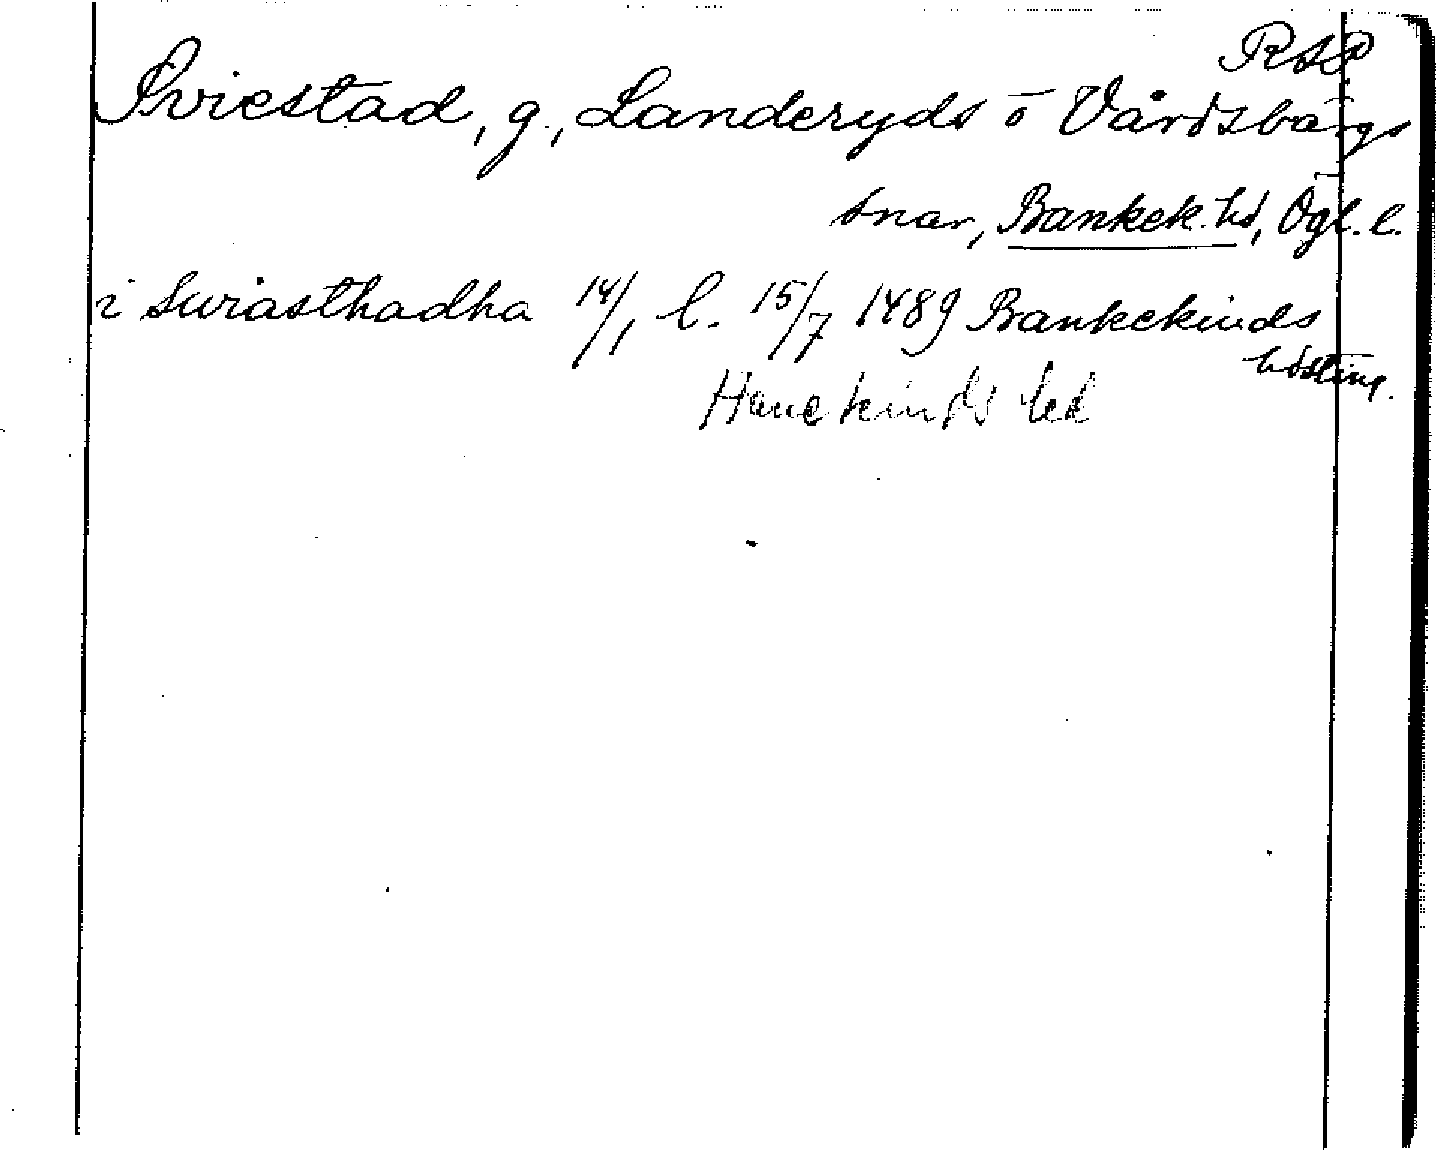 RAP
Sviestad, g., Landeryds o Vårdsbärgs
snar, Bankek. hd, Ögl. l.
i Swiasthadha 14/1 l. 15/7 1489 Bankekinds
hdsting.
Hanekinds hd